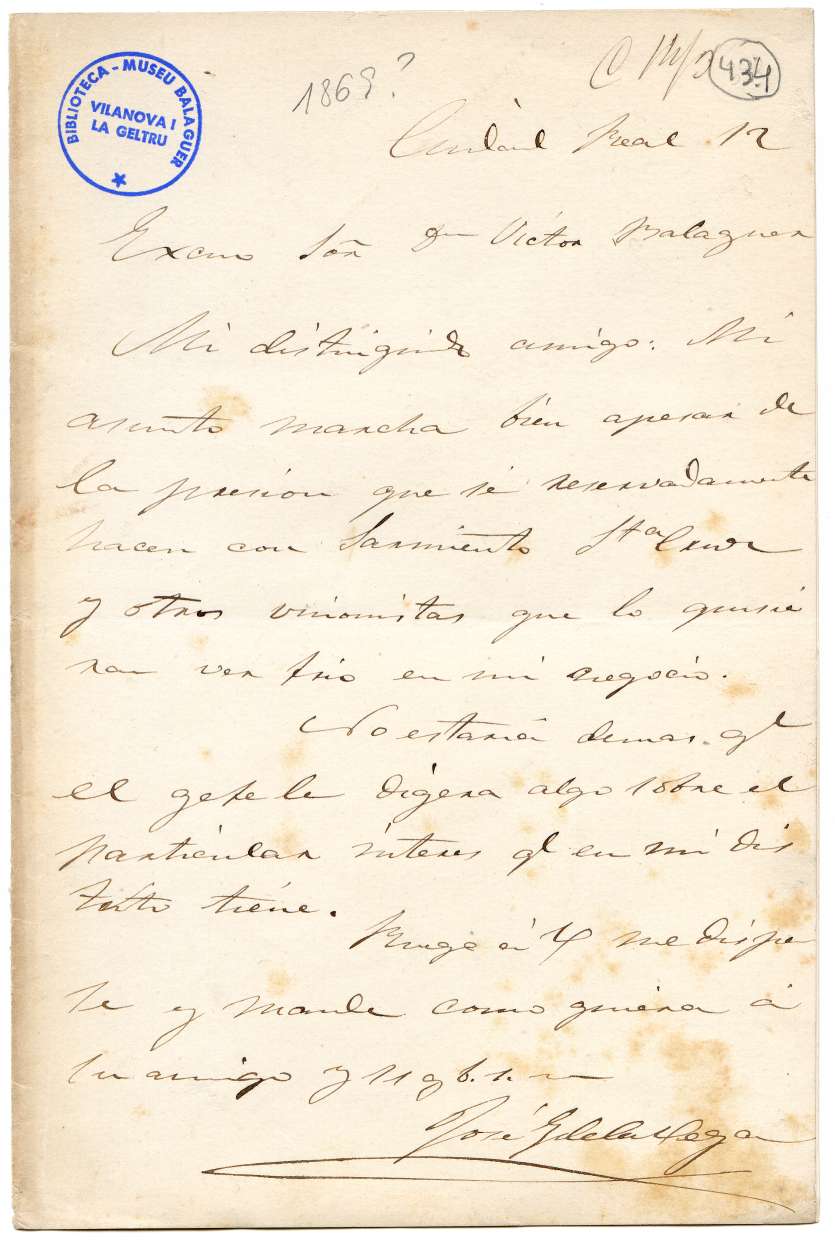 BIBLIOTECA - MUSEU BALAGUER
VILANOVA I
LA GELTRU
1869?
C 14/3
434
Ciudad Real 12
Excmo Sör Dn Víctor Balaguer
Mi distinguido amigo: Mi
asunto marcha bien apesar de
la presion que sé reservadamente
hacen con Sarmiento Sta Cruz
y otros unionistas que lo quisie
ran ver frio en mi negocio.
No estaria demas ql
el gefe le digera algo sobre el
particular interes ql en mi dis
trito tiene.
Ruego á V me dispen
se y mande como quiera á
su amigo y ss q b. s. m
José G de la Vega